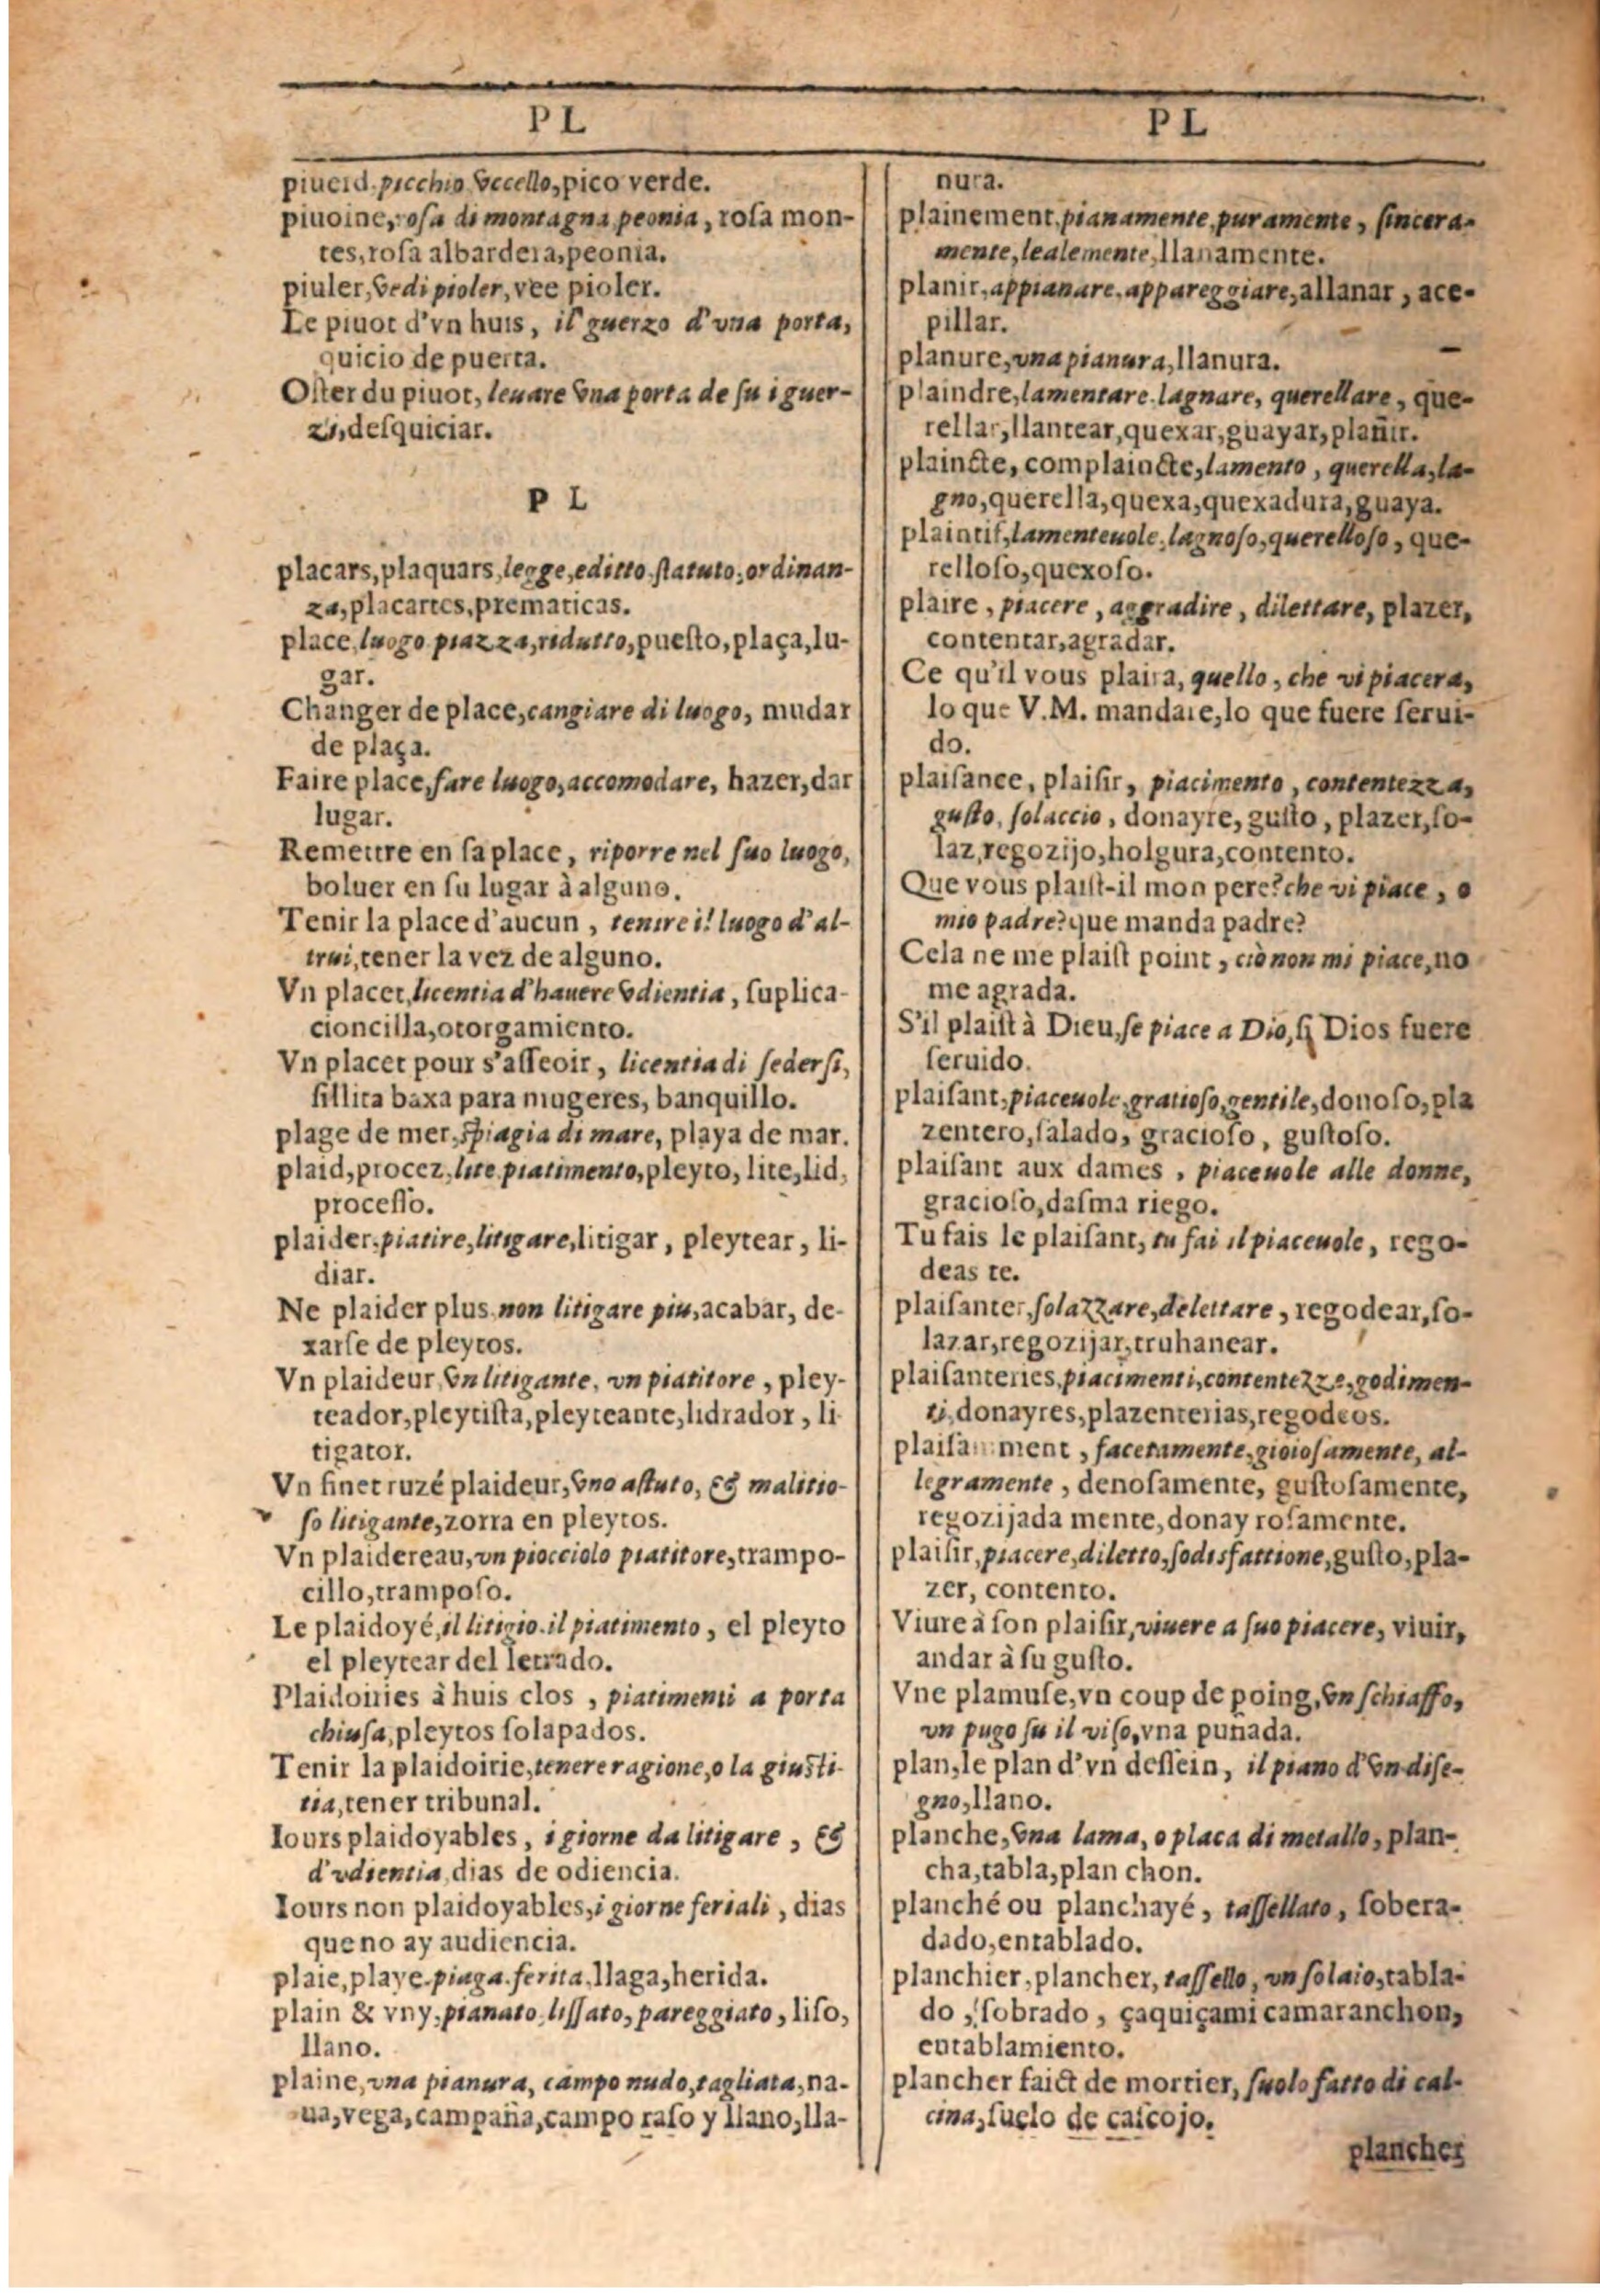 PL
piuerd, picchio vccello, pico verde.
piuoine, rosa di montagna, peonia, rosa mon-
tes, rosa albardera, peonia.
piuler, vedi pioler, vee pioler.
Le piuot d'vn huis, il guerzo d'vna porta,
quicio de puerta.
Oster du piuot, leuare vna porta de su i guer-
zi, desquiciar.
PL
placars, plaquars, legge, editto, statuto, ordinan-
za, placartes, prematicas.
place, luogo, piazza, ridutto, puesto, plaça, lu-
gar.
Changer de place, cangiare di luogo, mudar
de plaça.
Faire place, fare luogo, accomodare, hazer, dar
lugar.
Remettre en sa place, riporre nel suo luogo,
boluer en su lugar à alguno.
Tenir la place d'aucun, tenire il luogo d'al-
trui, tener la vez de alguno.
Vn placet, licentia d'hauere vdientia, suplica-
cioncilla, otorgamiento.
Vn placet pour s'asseoir, licentia di sedersi,
sillita baxa para mugeres, banquillo.
plage de mer, spiagia di mare, playa de mar.
plaid, procez, lite, piatimento, pleyto, lite, lid,
processo.
plaider, piatire, litigare, litigar, pleytear, li-
diar.
Ne plaider plus, non litigare piu, acabar, de-
xarse de pleytos.
Vn plaideur, vn litigante, vn piatitore, pley-
teador, pleytista, pleyteante, lidrador, li
tigator.
Vn finet ruzé plaideur, vno astuto, & malitio-
so litigante, zorra en pleytos.
Vn plaidereau, vn piocciolo piatitore, trampo-
cillo, tramposo.
Le plaidoyé, il litigio, il piatimento, el pleyto
el pleytear del letrado.
Plaidoiries à huis clos, piatimenti a porta
chiusa, pleytos solapados.
Tenir la plaidoirie, tenere ragione, o la giusti-
tia, tener tribunal.
Iours plaidoyables, i giorne da litigare, &
d'vdientia, dias de odiencia.
Iours non plaidoyables, i giorne feriali, dias
que no ay audiencia.
plaie, playe, piaga, ferita, llaga, herida.
plain & vny, pianato, lissato, pareggiato, liso,
llano.
plaine, vna pianura, campo nudo, tagliata, na-
ua, vega, campaña, campo raso y llano, lla-
PL
nura.
plainement, pianamente, puramente, sincera-
mente, lealemente, llanamente.
planir, appianare, appareggiare, allanar, ace-
pillar.
planure, vna pianura, llanura.
plaindre, lamentare, lagnare, querellare, que-
rellar, llantear, quexar, guayar, plañir.
plaincte, complaincte, lamento, querella, la-
gno, querella, quexa, quexadura, guaya.
plaintif, lamenteuole, lagnoso, querelloso, que-
relloso, quexoso.
plaire, piacere, aggradire, dilettare, plazer,
contentar, agradar.
Ce qu'il vous plaira, quello, che vi piacera,
lo que V.M. mandare, lo que fuere serui-
do.
plaisance, plaisir, piacimento, contentezza,
gusto, solaccio, donayre, gusto, plazer, so-
laz, regozijo, holgura, contento.
Que vous plaist-il mon pere? che vi piace, o
mio padre? que manda padre?
Cela ne me plaist point, ciò non mi piace, no
me agrada.
S'il plaist à Dieu, se piace a Dio, si Dios fuere
seruido.
plaisant, piaceuole, gratioso, gentile, donoso, pla
zentero, salado, gracioso, gustoso.
plaisant aux dames, piaceuole alle donne,
gracioso, dasma riego.
Tu fais le plaisant, tu fai il piaceuole, rego-
deas te.
plaisanter, solazzare, delettare, regodear, so-
lazar, regozijar, truhanear.
plaisanteries, piacimenti, contentezze, godimen-
ti, donayres, plazenterias, regodeos.
plaisamment, facetamente, gioiosamente, al-
legramente, denosamente, gustosamente,
regozijada mente, donay rosamente.
plaisir, piacere, diletto, sodisfattione, gusto, pla-
zer, contento.
Viure à son plaisir, viuere a suo piacere, viuir,
andar à su gusto.
Vne plamuse, vn coup de poing, vn schiaffo,
vn pugo su il viso, vna puñada.
plan, le plan d'vn dessein, il piano d'vn dise-
gno, llano.
planche, vna lama, o placa di metallo, plan-
cha, tabla, plan chon.
planché ou planchayé, tassellato, sobera-
dado, entablado.
planchier, plancher, tassello, vn solaio, tabla-
do, sobrado, çaquiçami camaranchon,
entablamiento.
plancher faict de mortier, suolo fatto di cal-
cina, suelo de cascojo.
plancher